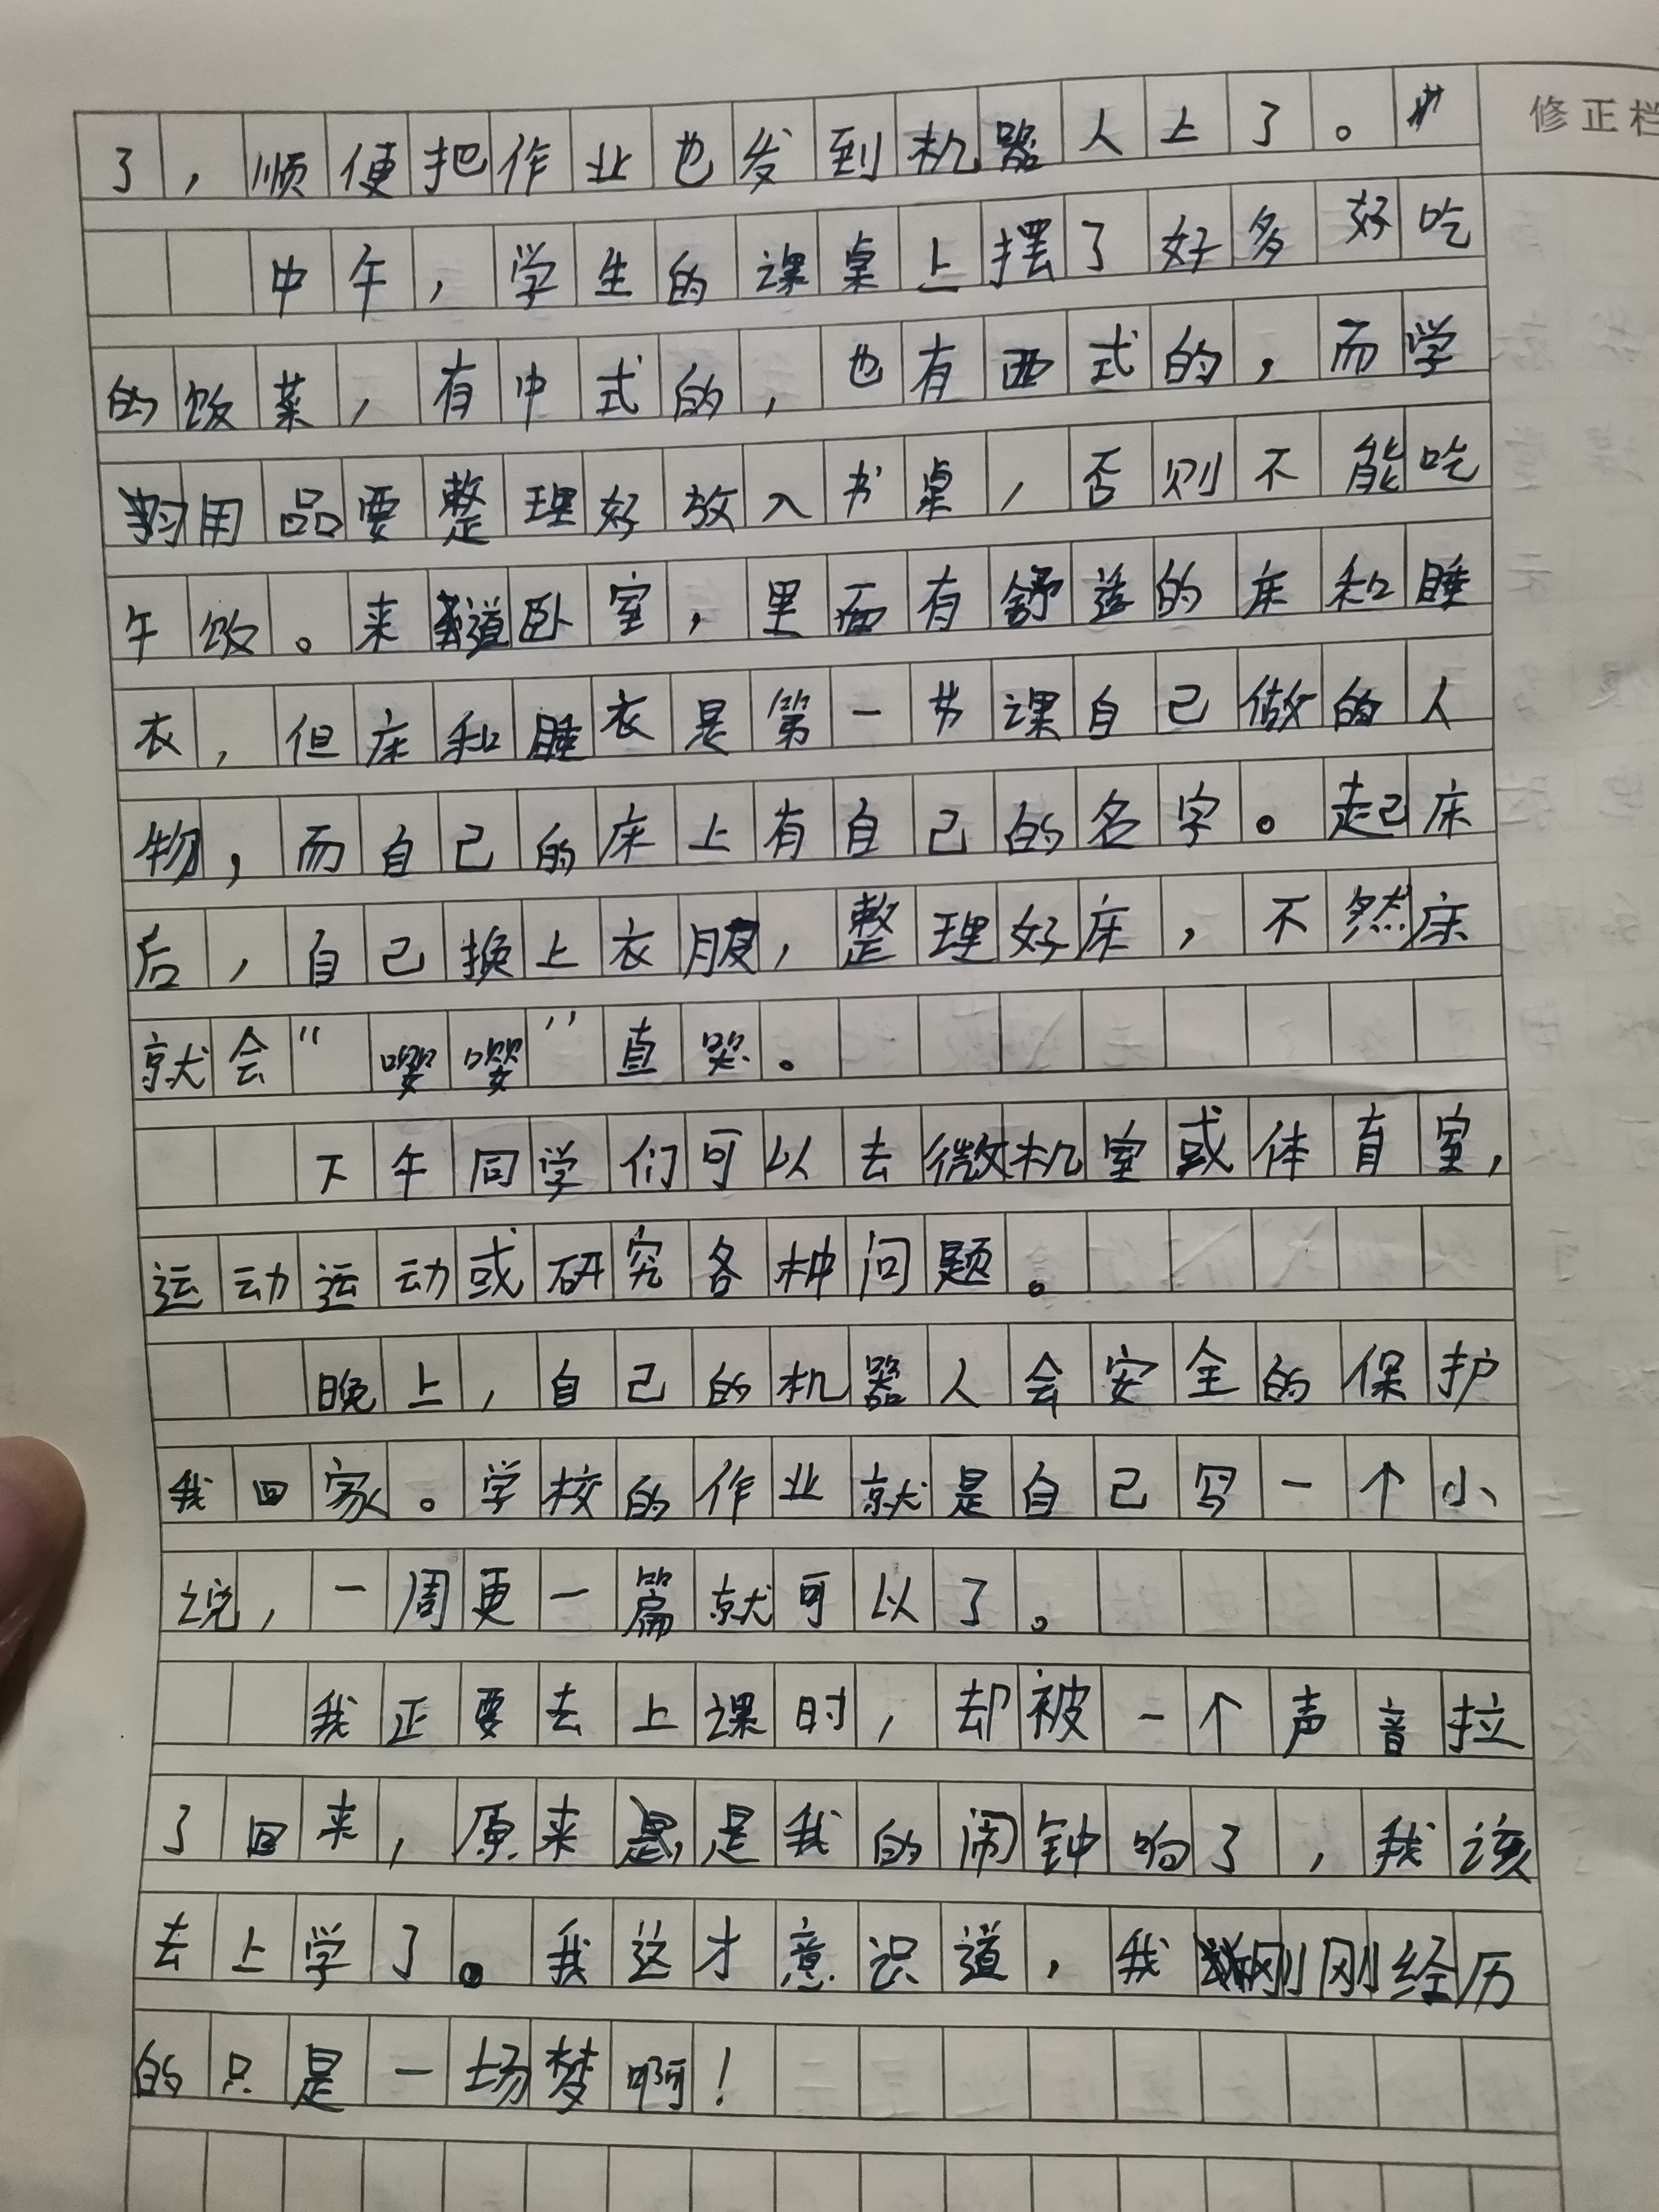 修正栏
了，顺便把作业也发到机器人上了。
中午，学生的课桌上摆了好多好吃
的饭菜，有中式的，也有西式的，而学
习用品要整理好放入书桌，否则不能吃
午饭。来道卧室，里面有舒适的床和睡
衣，但床和睡衣是第一节课自己做的人
物，而自己的床上有自己的名字。起床
后，自己换上衣服，整理好床，不然床
就会"嘤嘤"直哭。
下午同学们可以去微机室或体育室，
运动运动或研究各种问题。
晚上，自己的机器人会安全的保护
我回家。学校的作业就是自己写一个小
说，一周更一篇就可以了。
我正要去上课时，却被一个声音拉
了回来，原来是是我的闹钟响了，我该
去上学了。我这才意识道，我刚刚经历
的只是一场梦啊！